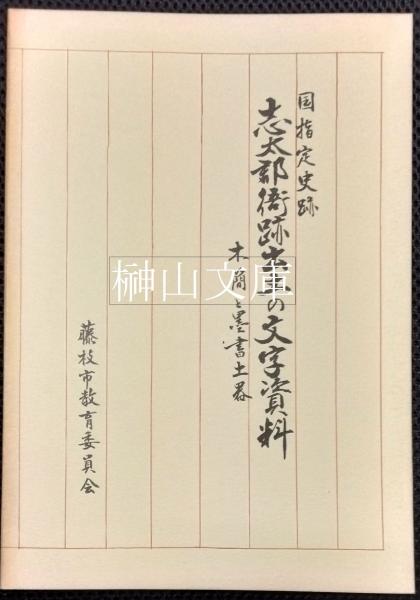 国指定史跡
志太郡衙跡出土の文字資料
木簡と墨書土器
藤枝市教育委員会
榊山文庫